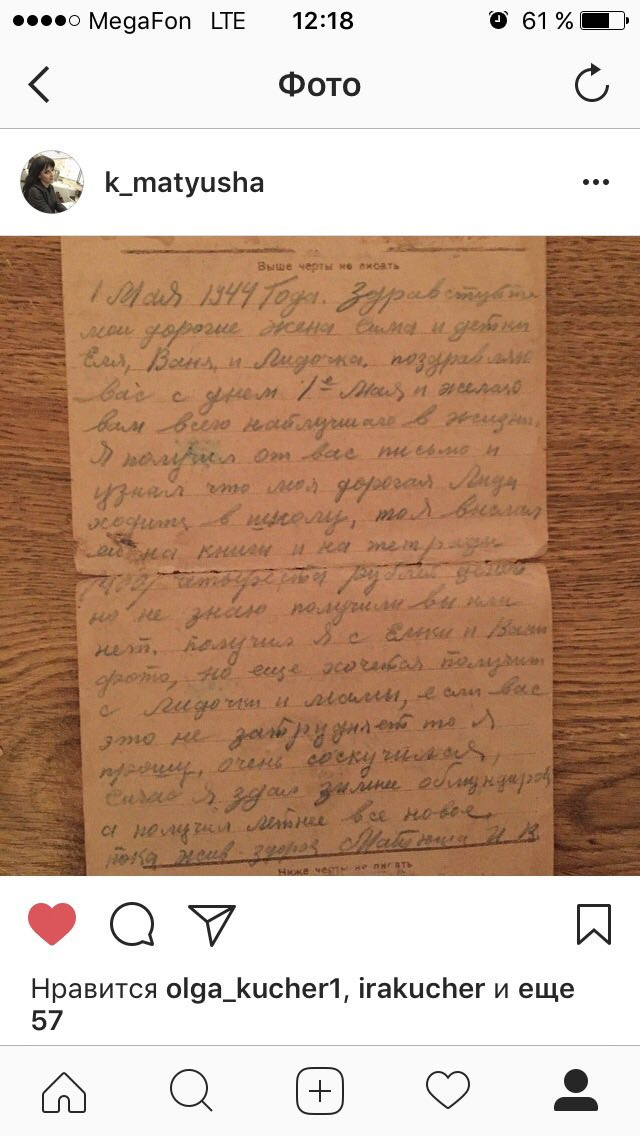 MegaFon LTE 12:18 61 %
Фото
k_matyusha
Выше черты не писать
1 Мая 1944 Года. Здравствуйте
мои дорогие жена Сима и детки
Еля, Ваня, и Лидочка. поздравляю
вас с днем 1е Мая и желаю
вам всего наблучшаго в жизни.
Я получил от вас письмо и
узнал что моя дорогая Лида
ходить в школу, то я выслал
ей на книги и на тетради
(400) четыреста рублей денег
но не знаю получили вы или
нет. получил Я с Елки и Вани
фото, но еще хочется получить
с Лидочки и мамы, если вас
это не затрудняет то Я
прошу, очень соскучился,
Сичас Я здал зимнее обмундиров
а получил летнее все новое.
пока жив-здоров Матюша И. К.
Ниже черты не писать
Нравится olga_kucher1, irakucher и еще
57